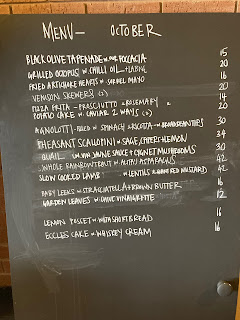 MENU - OCTOBER
BLACK OLIVE TAPENADE w. FOCCACIA 15
GRILLED OCTOPUS w. CHILLI OIL + 20
FRIED ARTICHOKE HEARTS w. MAYO 16
VENISON SKEWERS (2) 20
PIZZA FRITA - PROSCIUTTO & ROSEMARY 14
POTATO CAKE w. CAVIAR 2 WAYS 20
AGNOLOTTI - FILLED w SPINACH & RICOTTA - w. BROADBEANS 30
PHEASANT SCALLOPINI w SAGE, CAPERS + LEMON 34
QUAIL JAUNE SAUCE + CYGNET MUSHROOMS 30
WHOLE RAINBOW TROUT w. ASPARAGUS 42
SLOW COOKED LAMB w LENTILS & MUSTARD 42
BABY LEEKS w STRACIATELLA + BROWN BUTTER 16
GARDEN LEAVES w. CHIVE VINAIGRETTE 12
LEMON POSSET w SHORTBREAD 16
ECCLES CAKE w WHISKEY CREAM 16